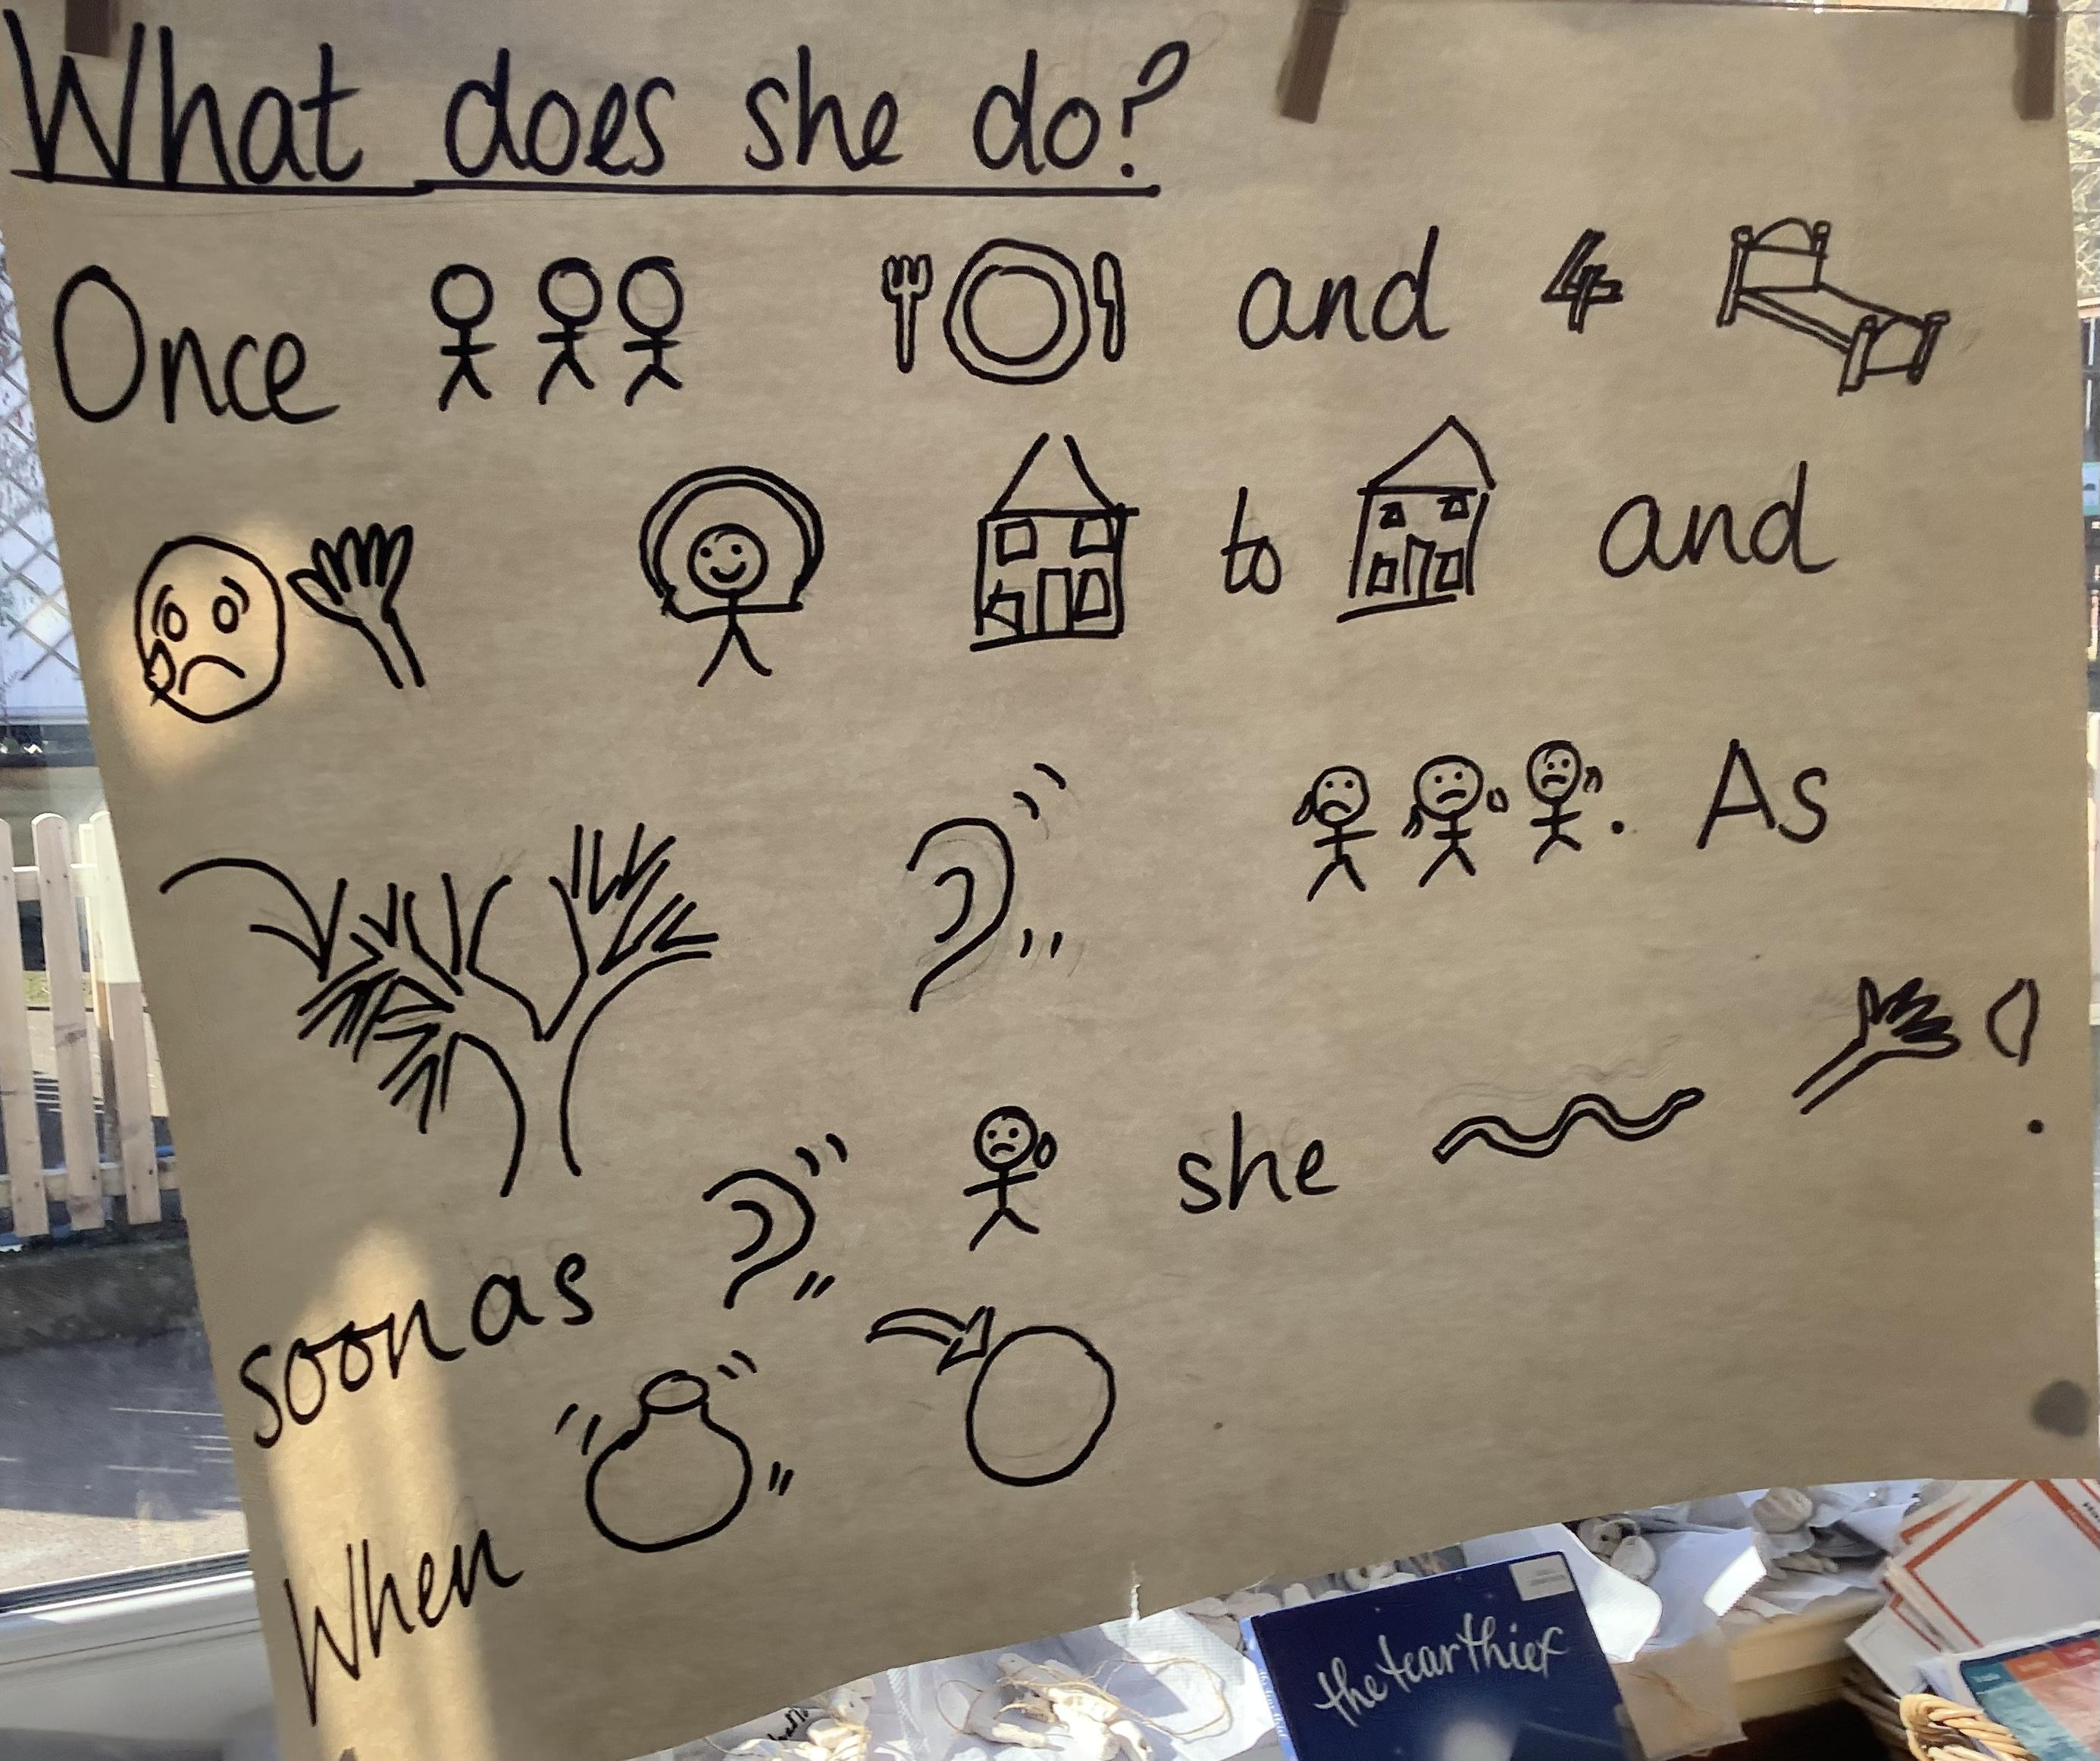 What does she do?
Once and 4
to and
As
soon as she .
When
the tear thief